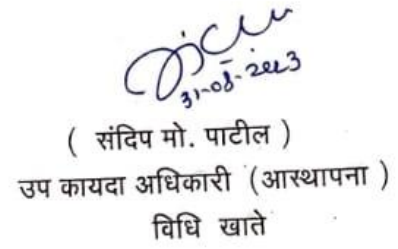 31-08-2023
( संदिप मो. पाटील )
उप कायदा अधिकारी (आस्थापना )
विधि खाते